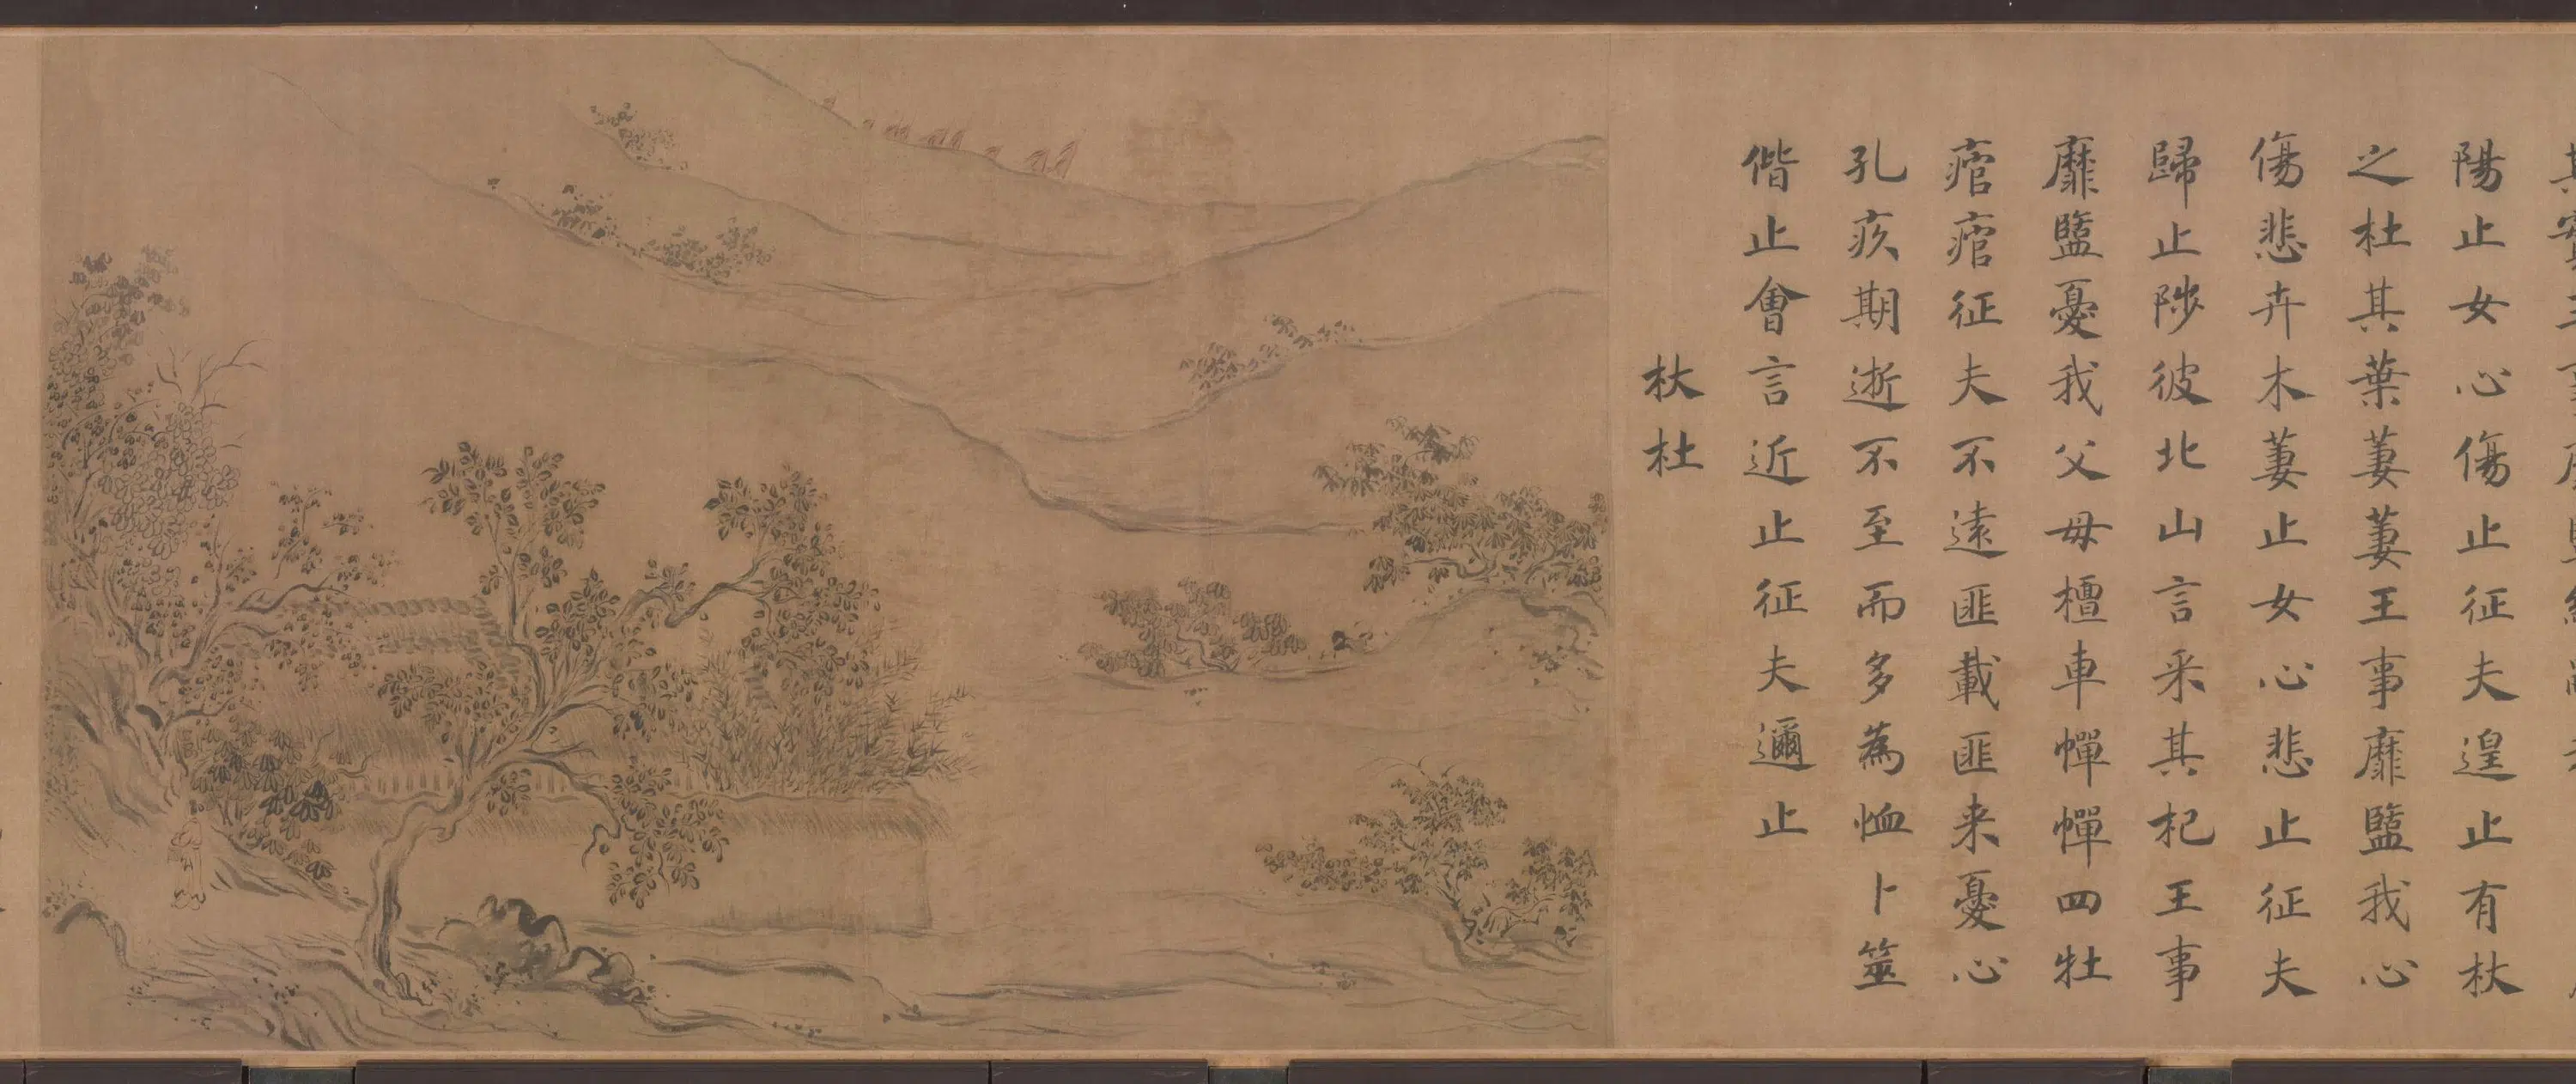 陽止女心傷止征夫遑止有杕
之杜其葉萋萋王事靡盬我心
傷悲卉木萋止女心悲止征夫
歸止陟彼北山言采其杞王事
靡盬憂我父母檀車幝幝四牡
痯痯征夫不遠匪載匪来憂心
孔疚期逝不至而多為恤卜筮
偕止會言近止征夫邇止
杕杜